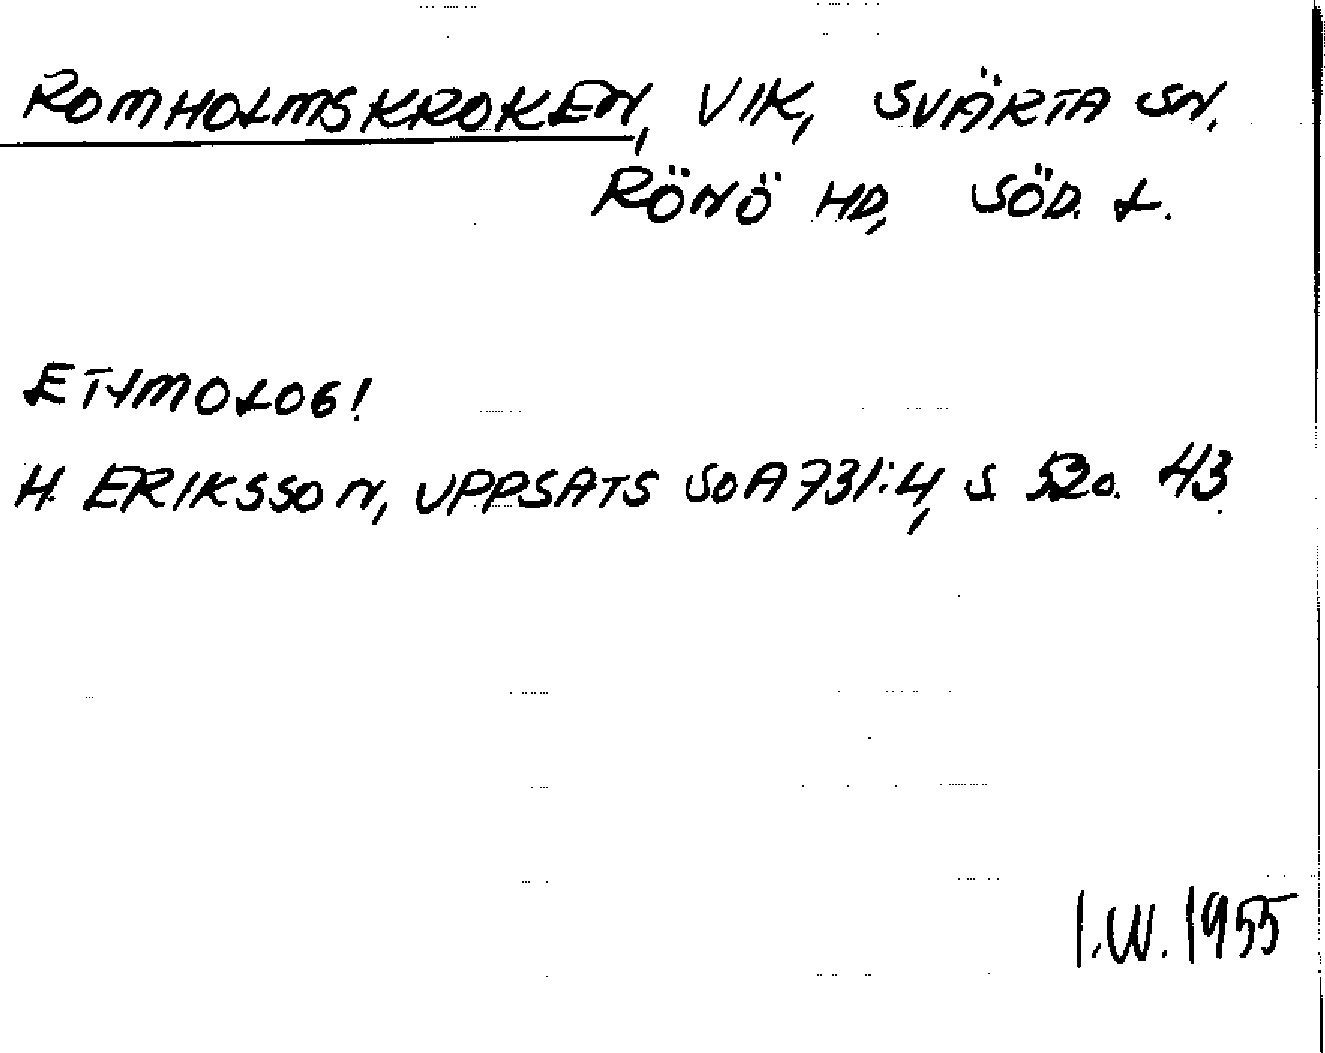 ROMHOLMSKROKEN, VIK, SVÄRTA SN.
RÖNÖ HD, SÖD. L.
ETYMOLOG!
H. ERIKSSON, UPPSATS SOA 731:4, S. 52 o. 43.
I.W. 1955